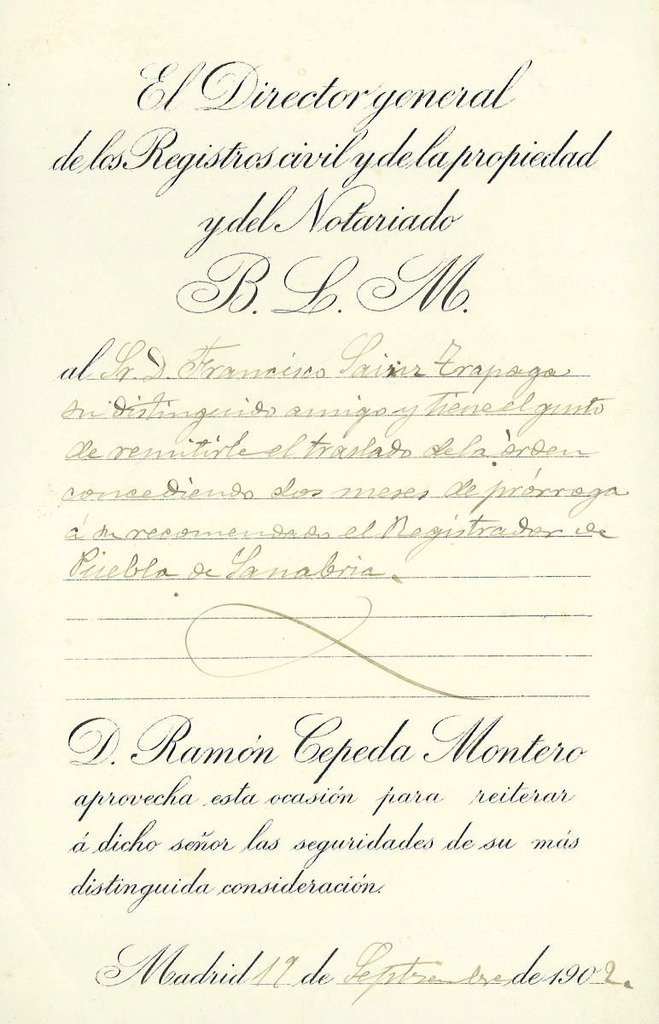 El Director general
de los Registros civil y de la propiedad
y del Notariado
B. L. M.
al Sr. D. Francisco Sainz Trapaga
su distinguido amigo y tiene el gusto
de remitirle el traslado de la órden
concediendo dos meses de prórroga
á su recomendado el Registrador de
Puebla de Sanabria.
D. Ramón Cepeda Montero
aprovecha esta ocasión para reiterar
á dicho señor las seguridades de su más
distinguida consideración.
Madrid 19 de Septiembre de 1902.